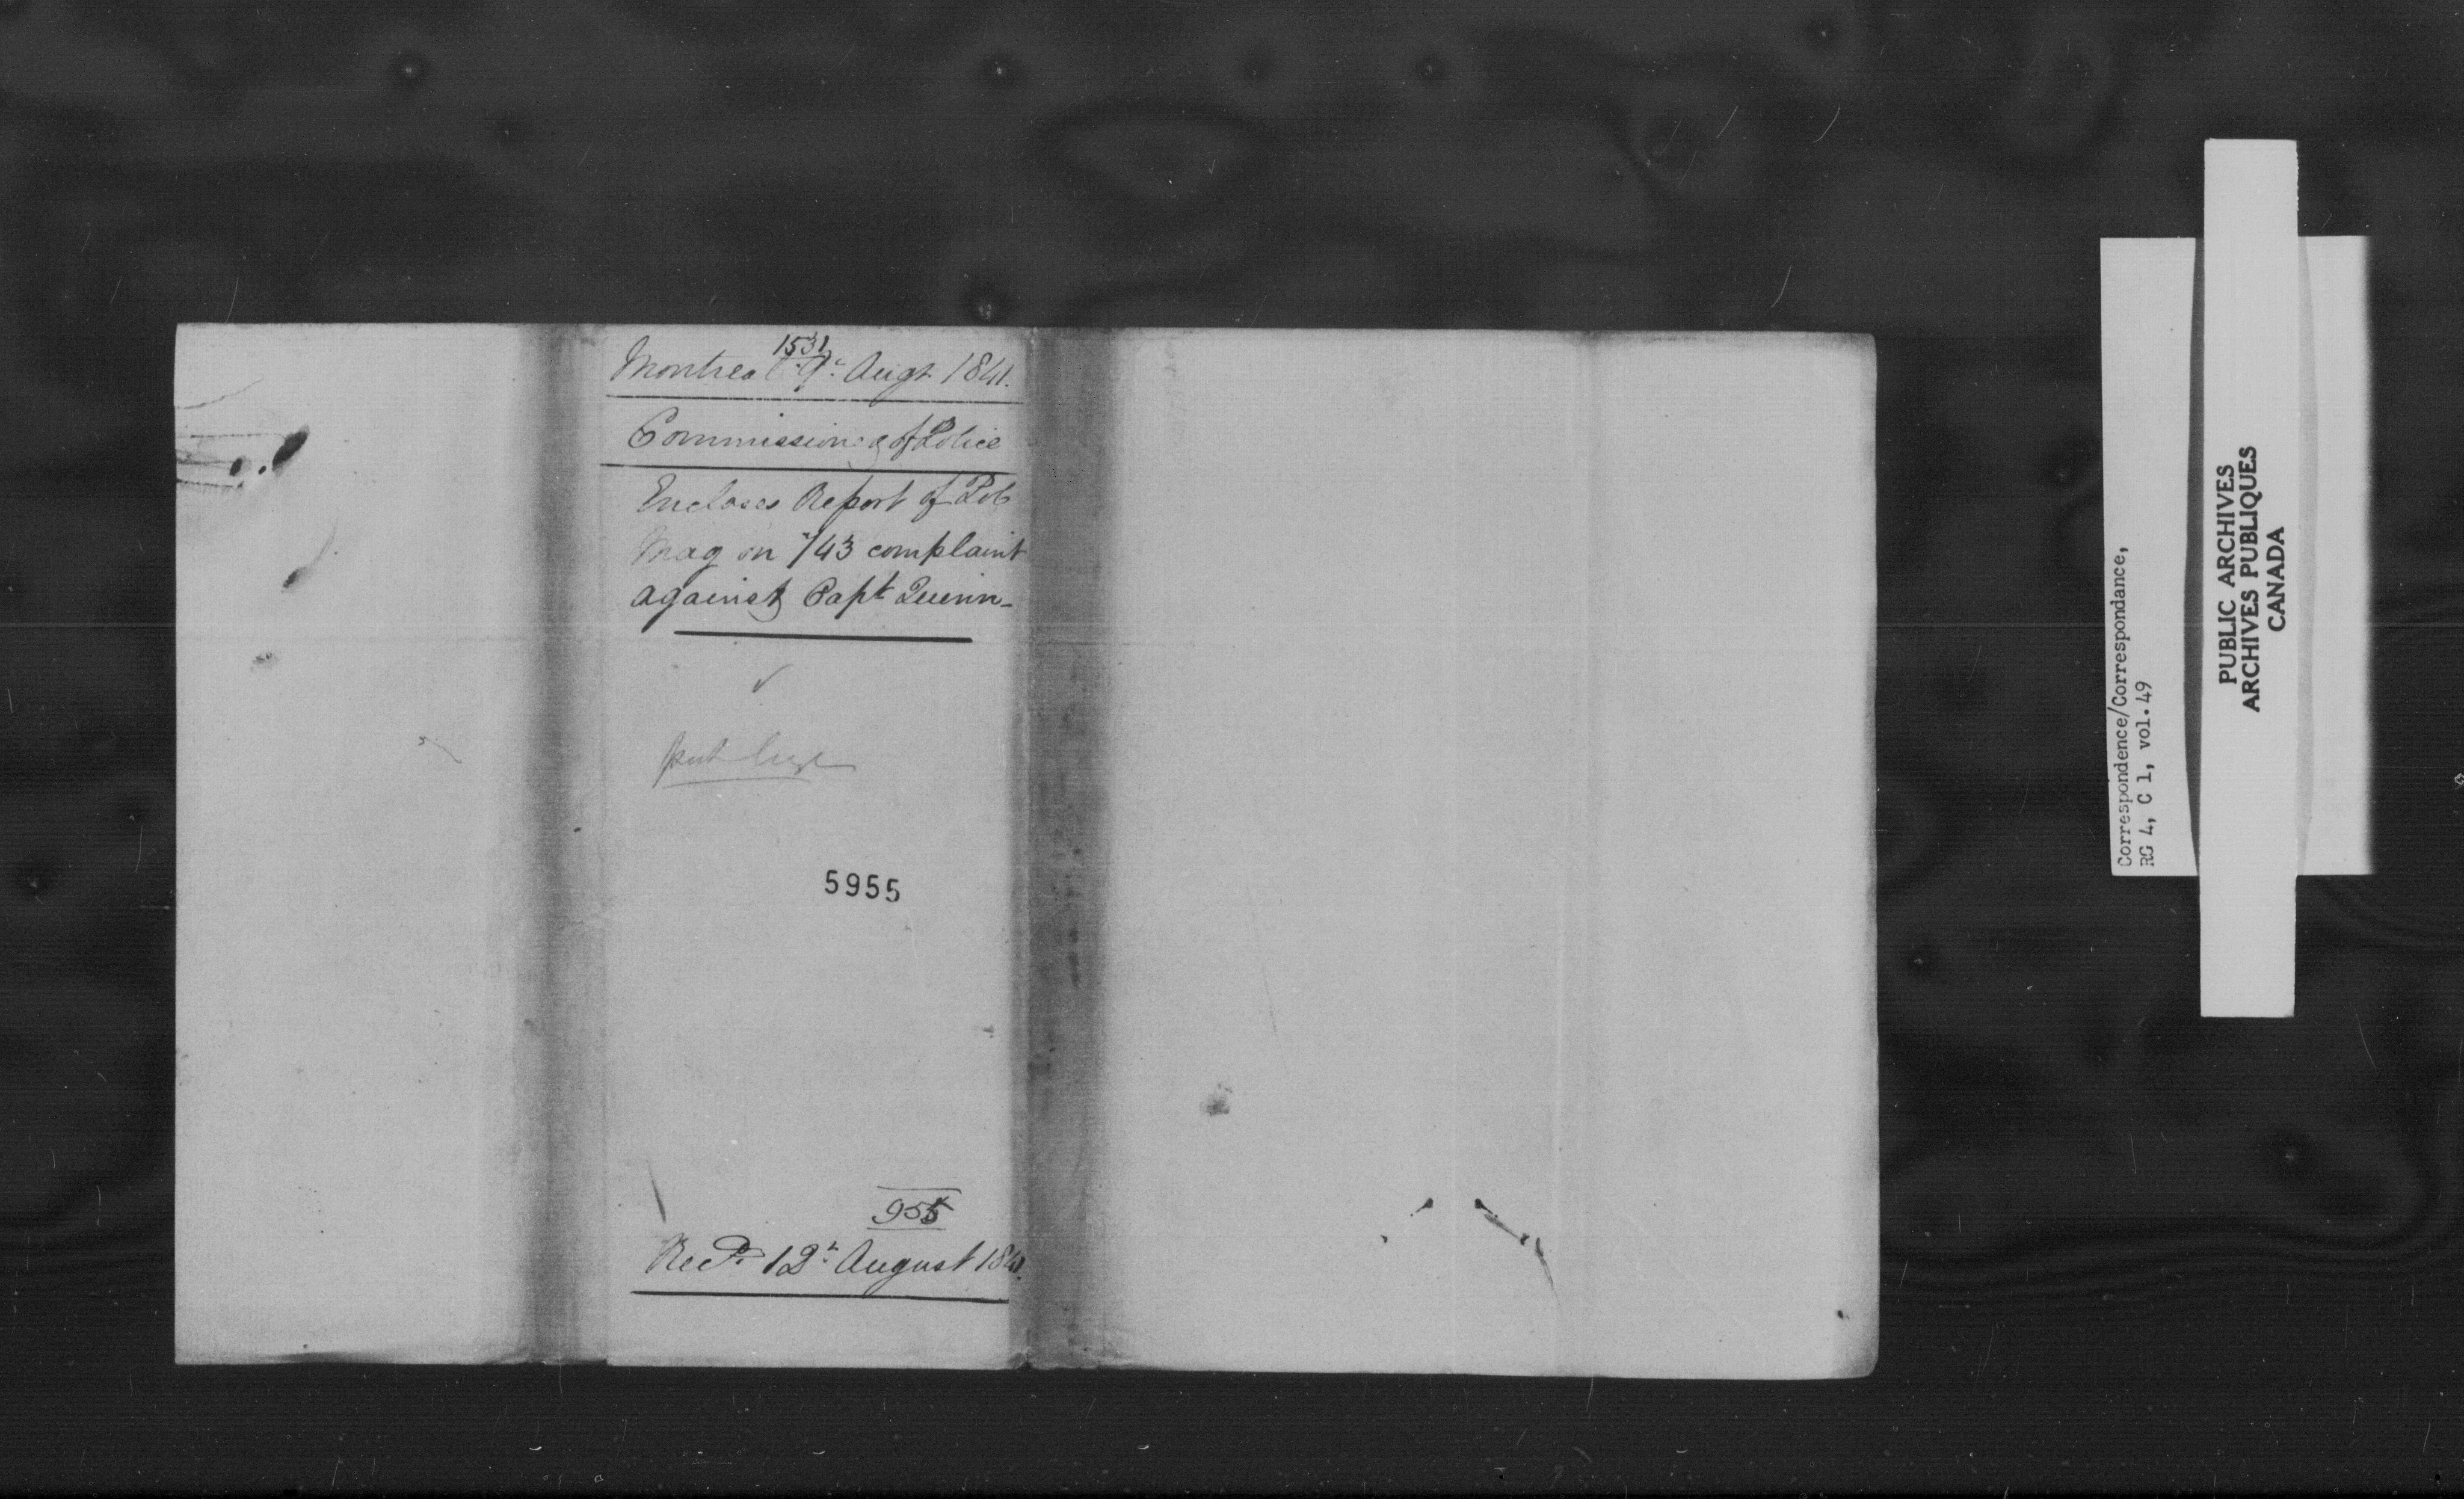 1531
Montreal 9th Augt 1841.
Commissioner of Police
Encloses Report of Pol
Mag on 743 complaint
against Capt Quinn-
put by
5955
955
Recd. 12th August 1841.
Correspondence/Correspondance,
RG 4, C 1, vol. 49
PUBLIC ARCHIVES
ARCHIVES PUBLIQUES
CANADA